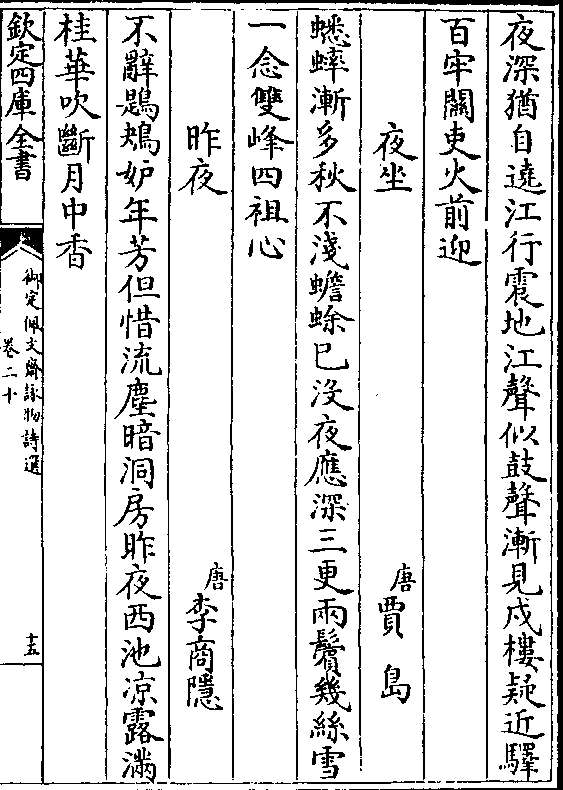 夜深猶自遶江行震地江聲似鼓聲漸見戍樓疑近驛
百牢關吏火前迎
夜坐
唐賈島
蟋蟀漸多秋不淺蟾蜍已没夜應深三更兩鬢幾絲雪
一念雙峰四祖心
昨夜
唐李商隱
不辭鶗鴂妒年芳但惜流塵暗洞房昨夜西池凉露滿
桂華吹斷月中香
欽定四庫全書
御定佩文齋詠物詩選
卷二十
十五